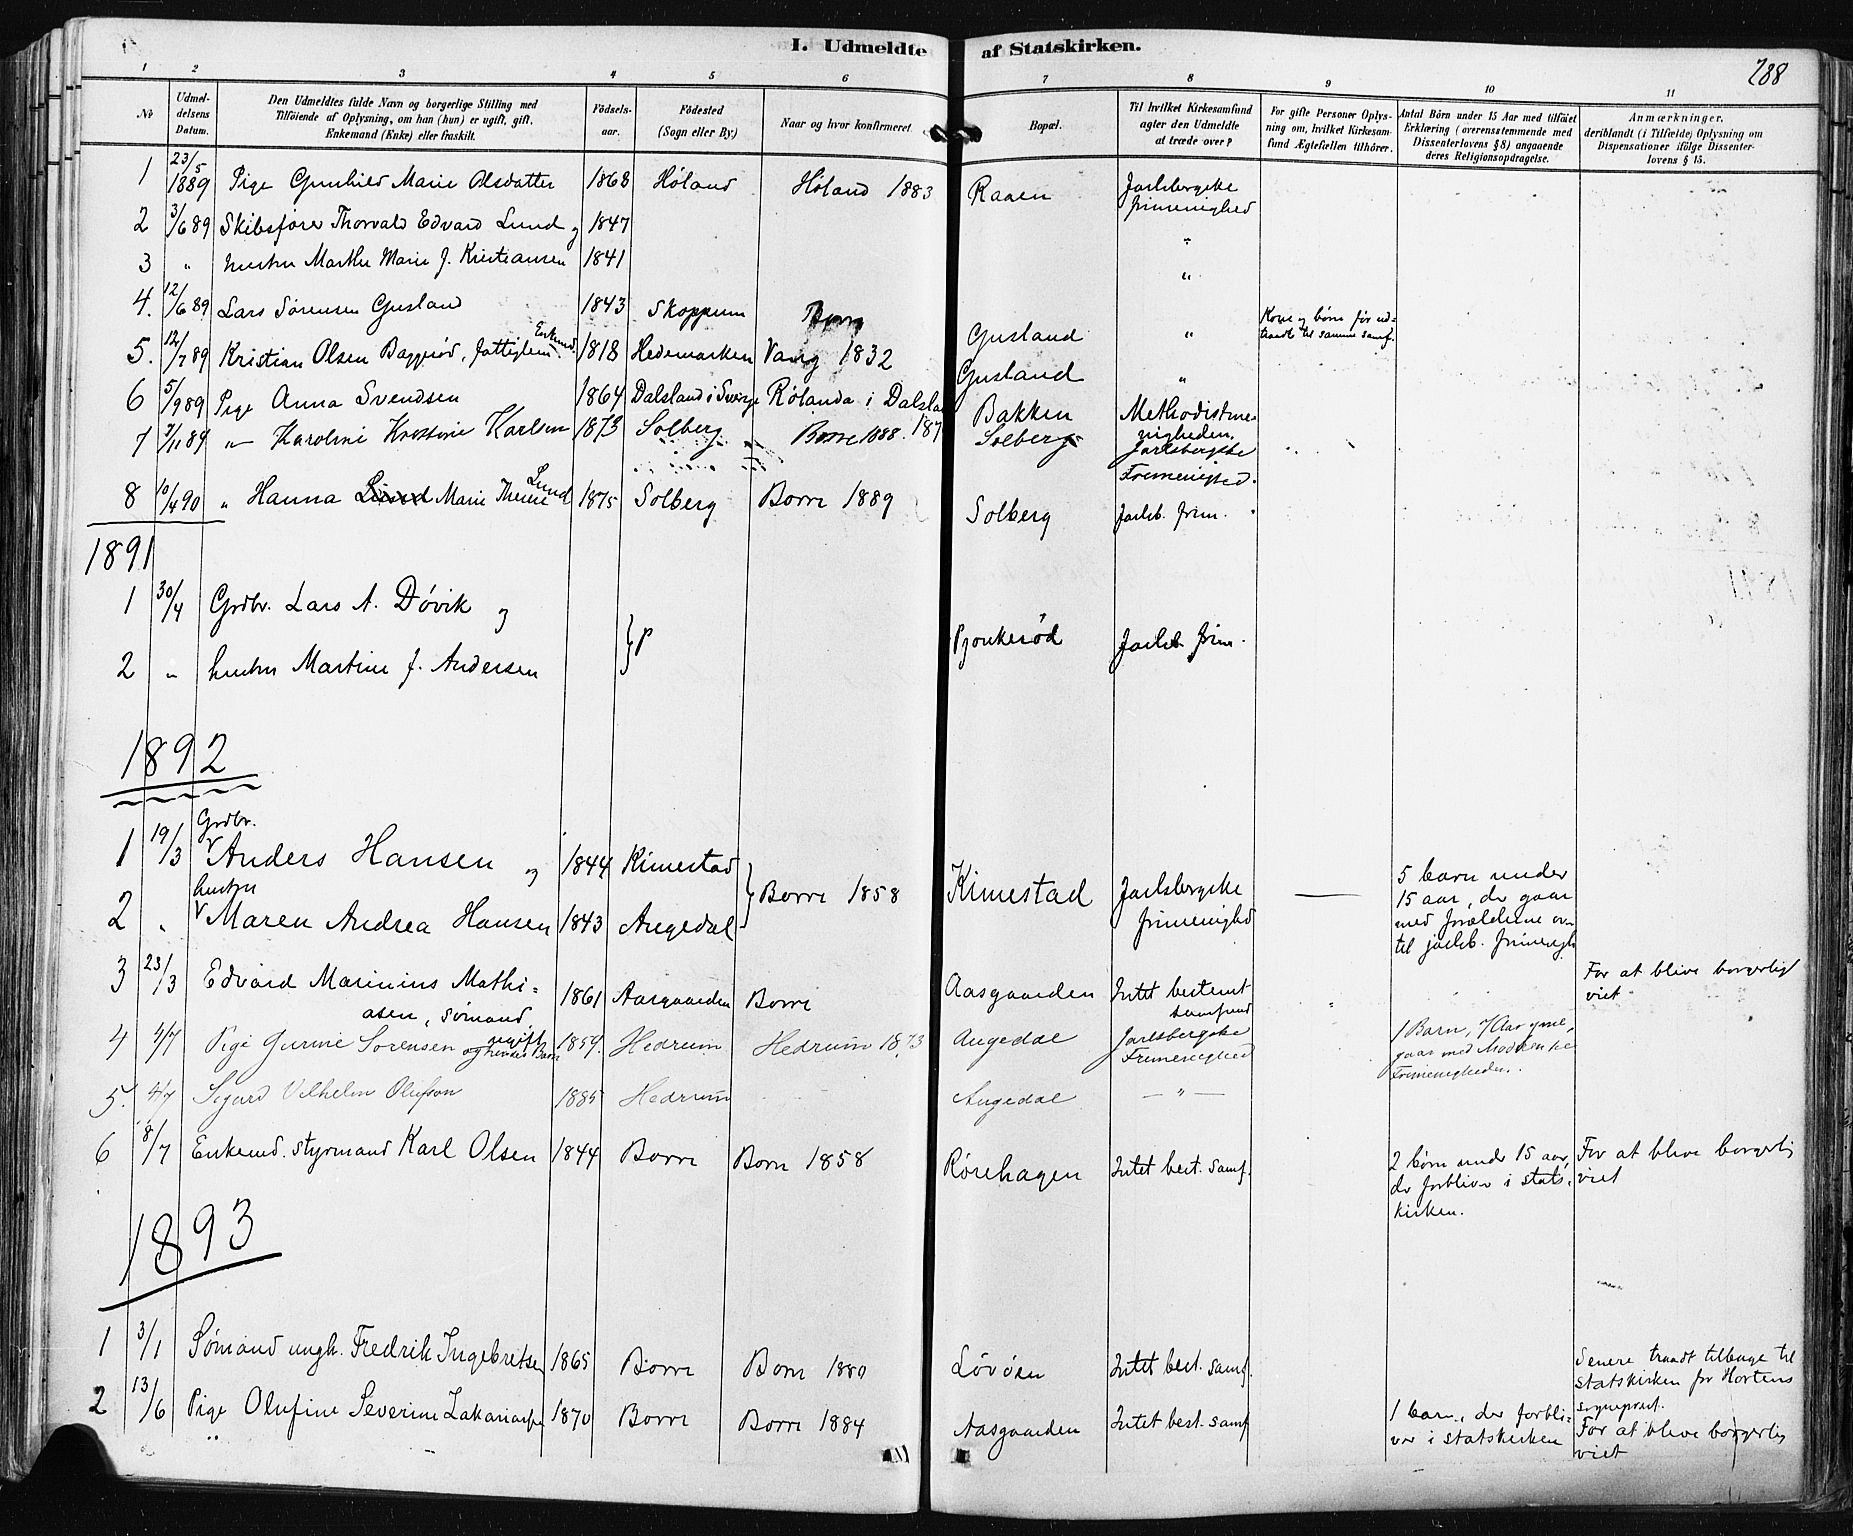 I. Udmeldte af Statskirken.
288
1 2 3 4 5 6 7 8 9 10 11
No
Udmel-
delsens
Datum.
Den Udmeldtes fulde Navn og borgerlige Stilling med
Tilføiende af Oplysning, om han (hun) er ugift, gift,
Enkemand (Enke) eller fraskilt.
Fødsels-
aar.
Fødested
(Sogn eller By)
Naar og hvor konfirmeret
Bopæl.
Til hvilket Kirkesamfund
agter den Udmeldte
at træde over?
For gifte Personer Oplys-
ning om, hvilket Kirkesam-
fund Ægtefællen tilhører.
Antal Børn under 15 Aar med tilføiet
Erklæring (overensstemmende med
Dissenterlovens § 8) angaaende
deres Religionsopdragelse.
Anmærkninger,
deriblandt (i Tilfælde) Oplysning om
Dispensationer ifølge Dissenter-
lovens § 15.
1 23/5 1889 Pige Gunhild Marie Olsdatter 1868 Høland Høland 1883 Raaen Jarlsbergske frimenighed
2 3/6 89 Skibsfører Thorvald Edvard Lund og 1847 "
3 " hustru Marthe Marie f. Kristiansen 1841 "
4. 12/6 89 Lars Sørensen Gusland 1843 Skoppum Borre Gusland " Kone og børn før ud-
traadt til samme samf.
5. 12/7 89 Kristian Olsen Baggerød, fattiglem Enkemd 1818 Hedemarken Vang 1832 Gusland "
6 5/9 89 Pige Anna Svendsen 1864 Dalsland i Sverige Rølanda i Dalsland 187 Bakken Methodistme-
nigheden.
7 2/11 89 " Karoline Kristine Karlsen 1873 Solberg Borre 1888. Solberg Jarlsbergske
Frimenighed.
8 10/4 90 " Hanna Lund Marie Therese Lund 1875 Solberg Borre 1889 Solberg Jarlsb. frim.
1891
1 30/4 Grdbr. Lars A. Døvik og
2 " hustru Martine f. Andersen } Pjonkerød Jarlsb. frim.
1892
1 19/3 Grdbr. Anders Hansen og 1844 Kimestad
2 " hustru Maren Andrea Hansen 1843 Augedal } Borre 1858 Kimestad Jarlsbergske
frimenighed — 5 barn under
15 aar, der gaar
med forældrene over
til jarlsb. frimenigh
3 23/3 Edvard Marinius Mathi-
asen, sømand 1861 Aasgaarden Borre Aasgaarden Intet bestemt
samfund For at blive borgerligt
viet
4 4/7 Pige Gurine Sørensen ugift og hendes Barn 1859. Hedrum Hedrum 1873 Augedal Jarlsbergske
Frimenighed 1 Barn, 7 Aar gml.,
gaar med Moderen til
Frimenigheden.
5. 4/7 Sigurd Vilhelm Olufson 1885 Hedrum Augedal — " —
6 8/7 Enkemd. styrmand Karl Olsen 1844 Borre Borre 1858 Rørehagen Intet best. samf. 2 børn under 15 aar,
der forbliver i stats-
kirken. For at blive borgerlig
viet
1893
1 3/1 Sømand ungk. Fredrik Ingebretsen 1865 Borre Borre 1880 Løvøen Intet best. samf. Senere traadt tilbage til
statskirken for Hortens
sogneprest.
2 13/6 Pige Olufine Severine Zakariasen 1870 Borre Borre 1884 Aasgaarden Intet best. samf 1 barn, der forbli-
ver i statskirken For at blive borgerlig
viet